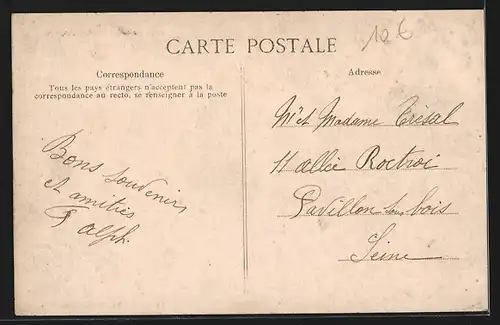 CARTE POSTALE
106
Correspondance
Tous les pays étrangers n'acceptent pas la
correspondance au recto, se renseigner à la poste
Adresse
Bons souvenirs
et amitiés
Mr et Madame Trésal
11 allée Rocroi
Pavillon sous bois
Seine